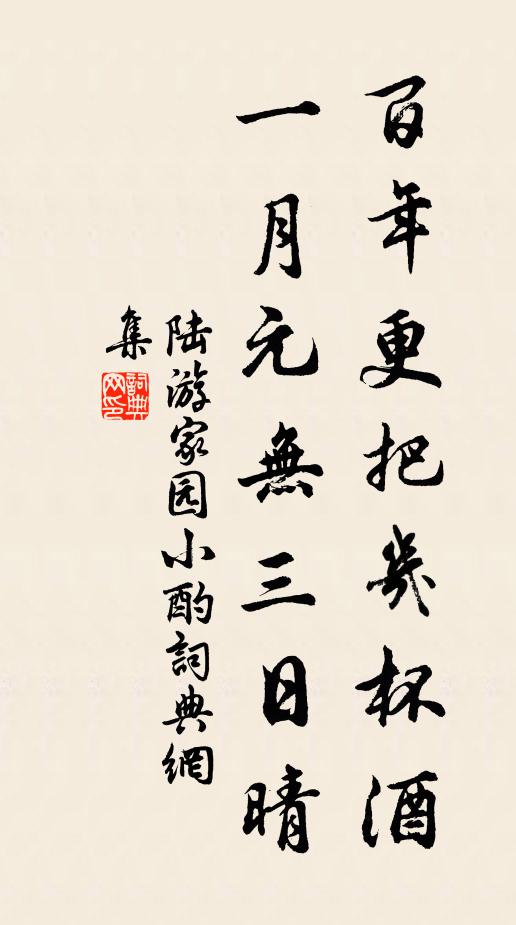 百年更把幾杯酒
一月元無三日晴
陆游家园小酌詞典網
集
詞典
网印